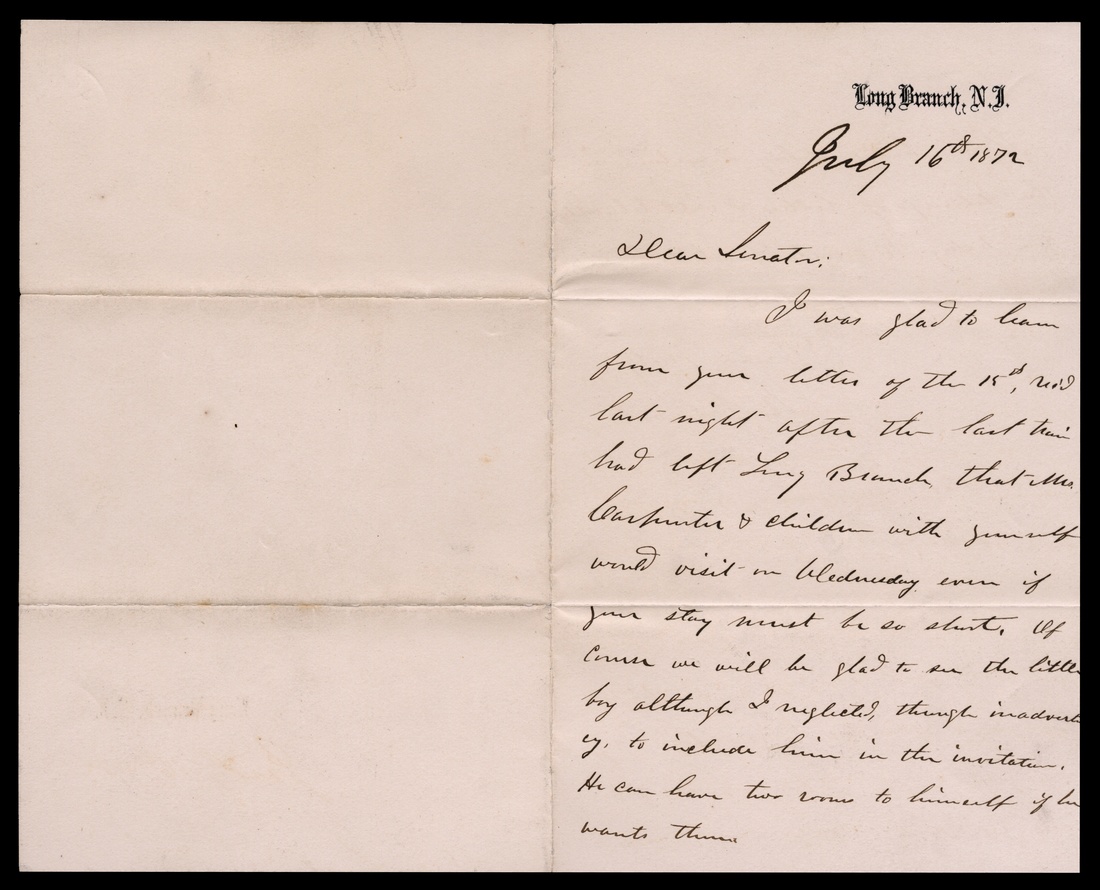 Long Branch, N.J.
July 16th 1872
Dear Senator;
I was glad to learn
from your letter of the 15th, rec'd
last night after the last train
had left Long Branch, that Mrs.
Carpenter & children with yourself
would visit on Wednesday even if
your stay must be so short. Of
course we will be glad to see the little
boy although I neglected, through inadvert
cy, to include him in the invitation.
He can have two rooms to himself if he
wants them